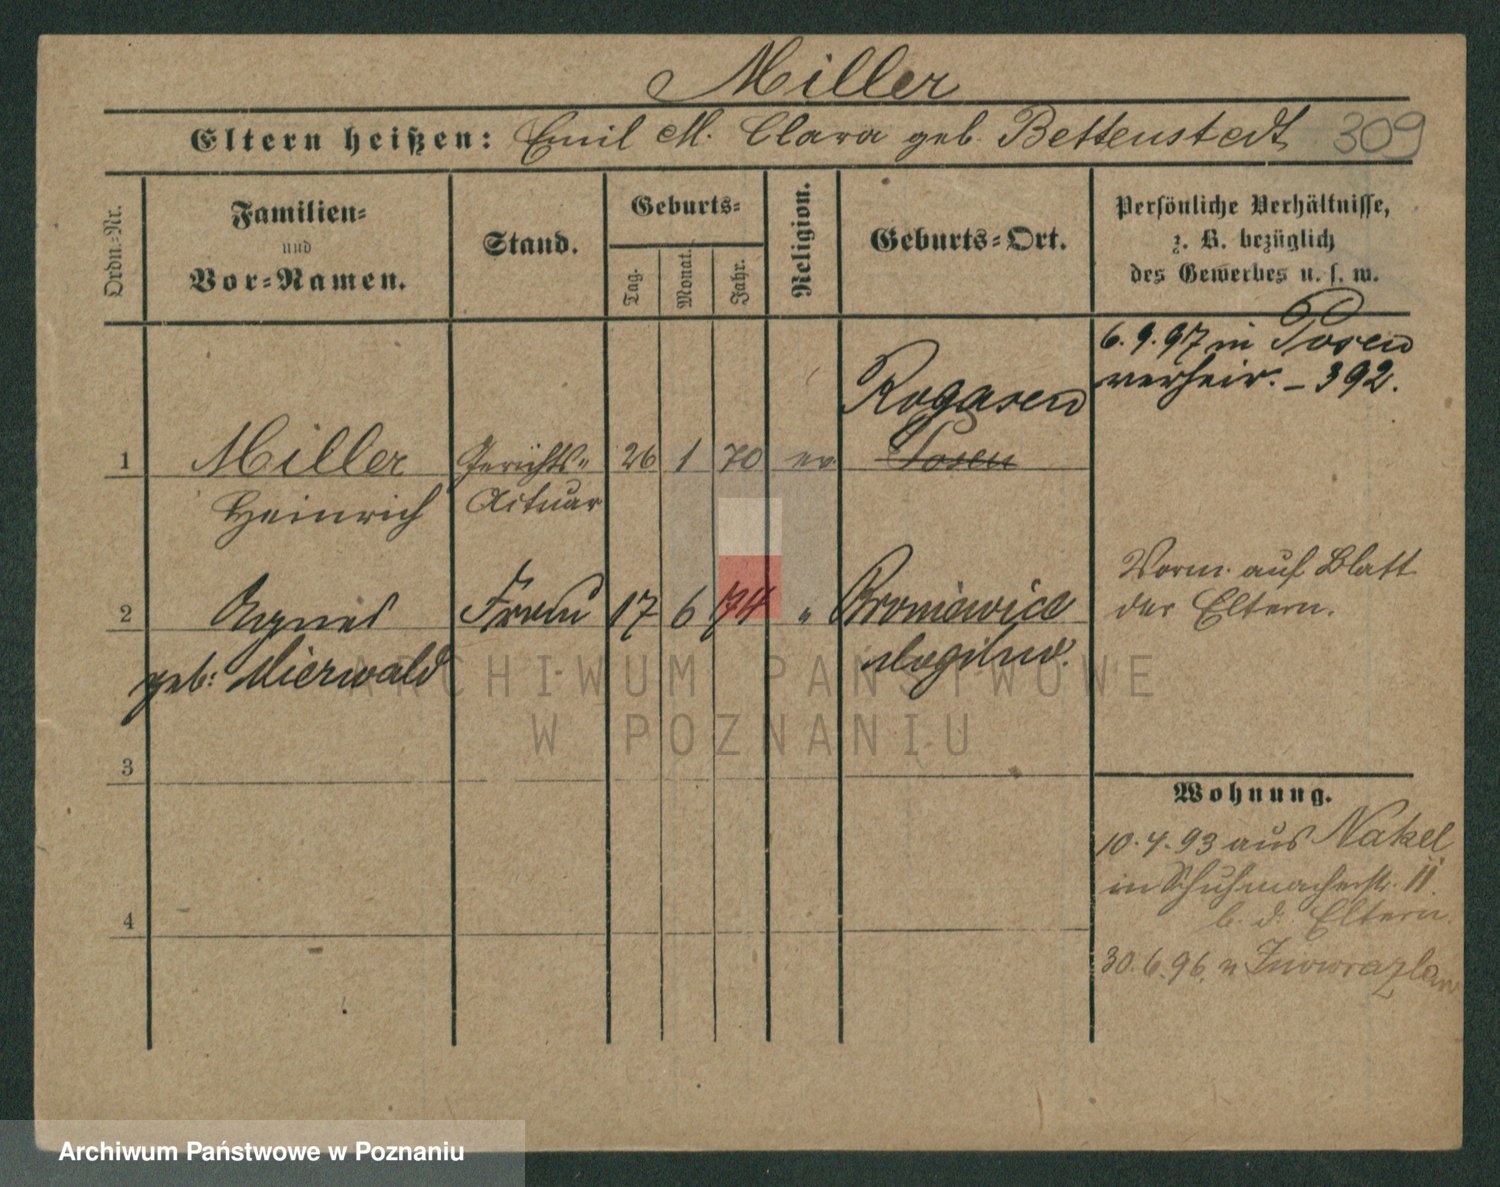 Miller
Eltern heißen: Emil M. Clara geb. Bettenstedt 309
Ordn=Nr.
Familien=
und
Vor=Namen.
Stand.
Geburts=
Tag.
Monat.
Jahr.
Religion.
Geburts=Ort.
Persönliche Verhältnisse,
z. B. bezüglich
des Gewerbes u. s. w.
6. 9. 97 in Posen
verheir. – 392.
Rogasen
1 Miller Gerichts- 26 1 70 ev Posen
Heinrich Actuar
Vorm. auf Blatt
der Eltern.
2 Agnes Frau 17 6 74 " Broniewice
geb: Mierwald Mogilno.
3
Wohnung.
10. 4. 93 aus Nakel
in Schuhmacherstr. 11.
b. d. Eltern.
4
30. 6. 96. n Inowrazlaw
ARCHIWUM PAŃSTWOWE
W POZNANIU
Archiwum Państwowe w Poznaniu